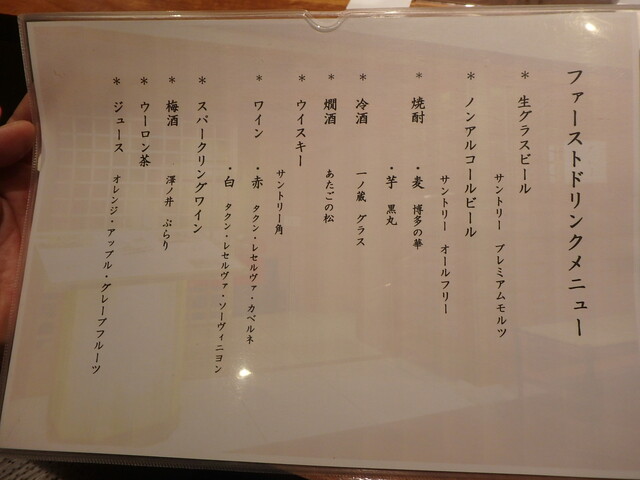 ファーストドリンクメニュー
＊ 生グラスビール
サントリー プレミアムモルツ
＊ ノンアルコールビール
サントリー オールフリー
＊ 焼酎 ・麦 博多の華
・芋 黒丸
＊ 冷酒 一ノ蔵 グラス
＊ 燗酒 あたごの松
＊ ウイスキー
サントリー角
＊ ワイン ・赤 タクン・レセルヴァ・カベルネ
・白 タクン・レセルヴァ・ソーヴィニヨン
＊ スパークリングワイン
＊ 梅酒 澤ノ井 ぷらり
＊ ウーロン茶
＊ ジュース オレンジ・アップル・グレープフルーツ